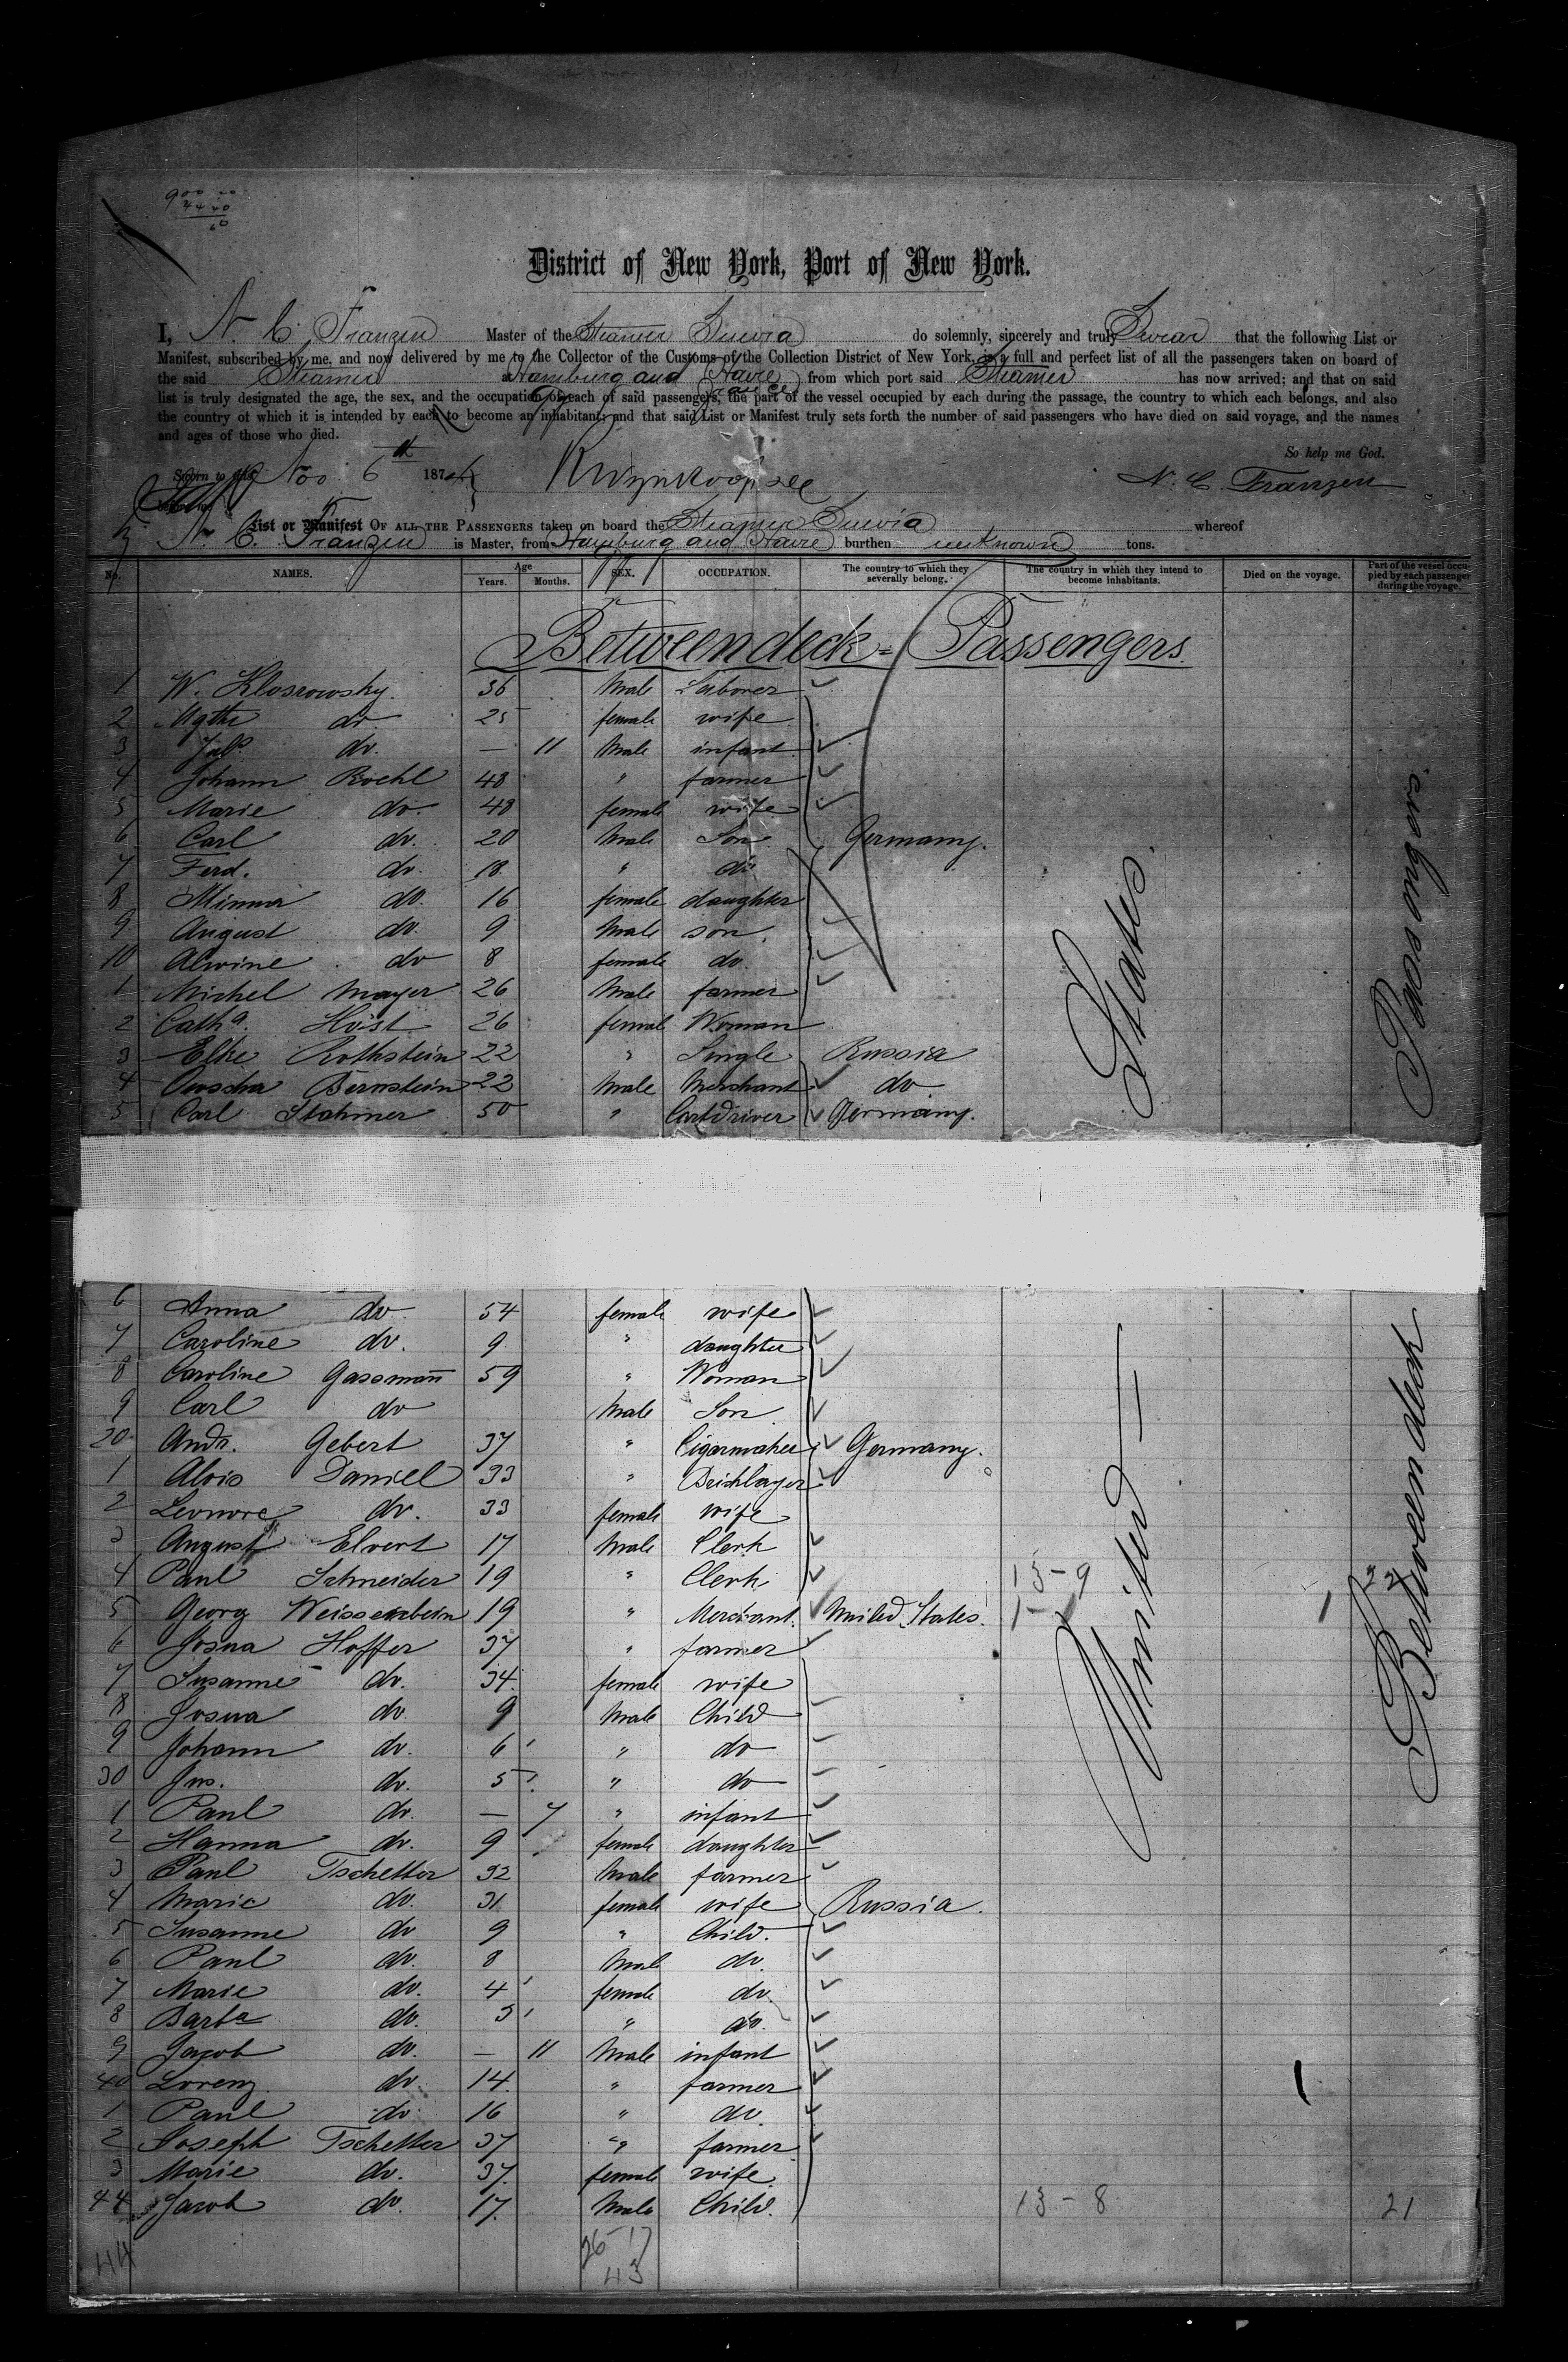 District of New York, Port of New York.
I, N. C. Franzen Master of the Steamer Suevia do solemnly, sincerely and truly Swear that the following List or
Manifest, subscribed by me, and now delivered by me to the Collector of the Customs of the Collection District of New York, is a full and perfect list of all the passengers taken on board of
the said Steamer at Hamburg and Havre from which port said Steamer has now arrived; and that on said
list is truly designated the age, the sex, and the occupation of each of said passengers, the part of the vessel occupied by each during the passage, the country to which each belongs, and also
the country of which it is intended by each to become an inhabitant; and that said List or Manifest truly sets forth the number of said passengers who have died on said voyage, and the names
and ages of those who died.
So help me God.
Sworn to this Nov 6th 187 N. C. Franzen
List or Manifest OF ALL THE PASSENGERS taken on board the Steamer Suevia whereof
N. C. Franzen is Master, from Hamburg and Havre burthen unknown tons.
No. NAMES. Age Years. Months. SEX. OCCUPATION. The country to which they severally belong. The country in which they intend to become inhabitants. Died on the voyage. Part of the vessel occupied by each passenger during the voyage.
Betweendeck = Passengers
1 W. Klosrowsky. 36 Male Laborer
2 do 25 female wife
3 do. — 11 Male infant
4 Johann Roehl 48 " farmer
5 Marie do. 48 female wife
6 Carl do. 20 Male Son Germany.
7 Ferd. do. 18 " do
8 Minna do. 16 female daughter
9 August do. 9 Male son.
10 Alwine do 8 female do.
1 Michel Mayer 26 Male farmer
2 Catha. Hoist 26 femal Woman
3 Elke Rothstein 22 " Single Russia
4 Bernstein 22 Male Merchant do
5 Carl Stahmer 50 " Cartdriver Germany.
6 Anna do 54 female wife
7 Caroline do. 9 " daughter
8 Caroline Gassmann 59 " Woman
9 Carl do Male Son
20 Andr. Gebert 37 " Cigarmaker Germany.
1 Alois Daniel 33 " Bricklayer
2 Leonore do. 33 female wife
3 August Elvert 17 Male Clerk
4 Paul Schneider 19 " Clerk 13-9
5 Georg Weissenbein 19 " Merchant. United States. 1
6 Josua Hoffer 37 " farmer
7 Susanne do. 34. female wife
8 Josua do. 9 Male Child
9 Johann do. 6 " do
30 Jos. do. 5 " do
1 Paul do. — 7 " infant
2 Hanna do. 9 female daughter
3 Paul Tschetter 32 Male farmer
4 Marie do. 31 female wife Russia.
5 Susanne do 9 " Child.
6 Paul do. 8 Male do.
7 Marie do. 4 female do.
8 Barba do. 3 " do.
9 Jacob do. — 11 Male infant
40 Lorenz do. 14. " farmer
1 Paul do 16 " do.
2 Joseph Tschetter 37 " farmer
3 Marie do. 37. female wife
44 Jacob do. 17. Male Child. 13-8 21
United States.
Betweendeck Passengers.
44 26 17
43